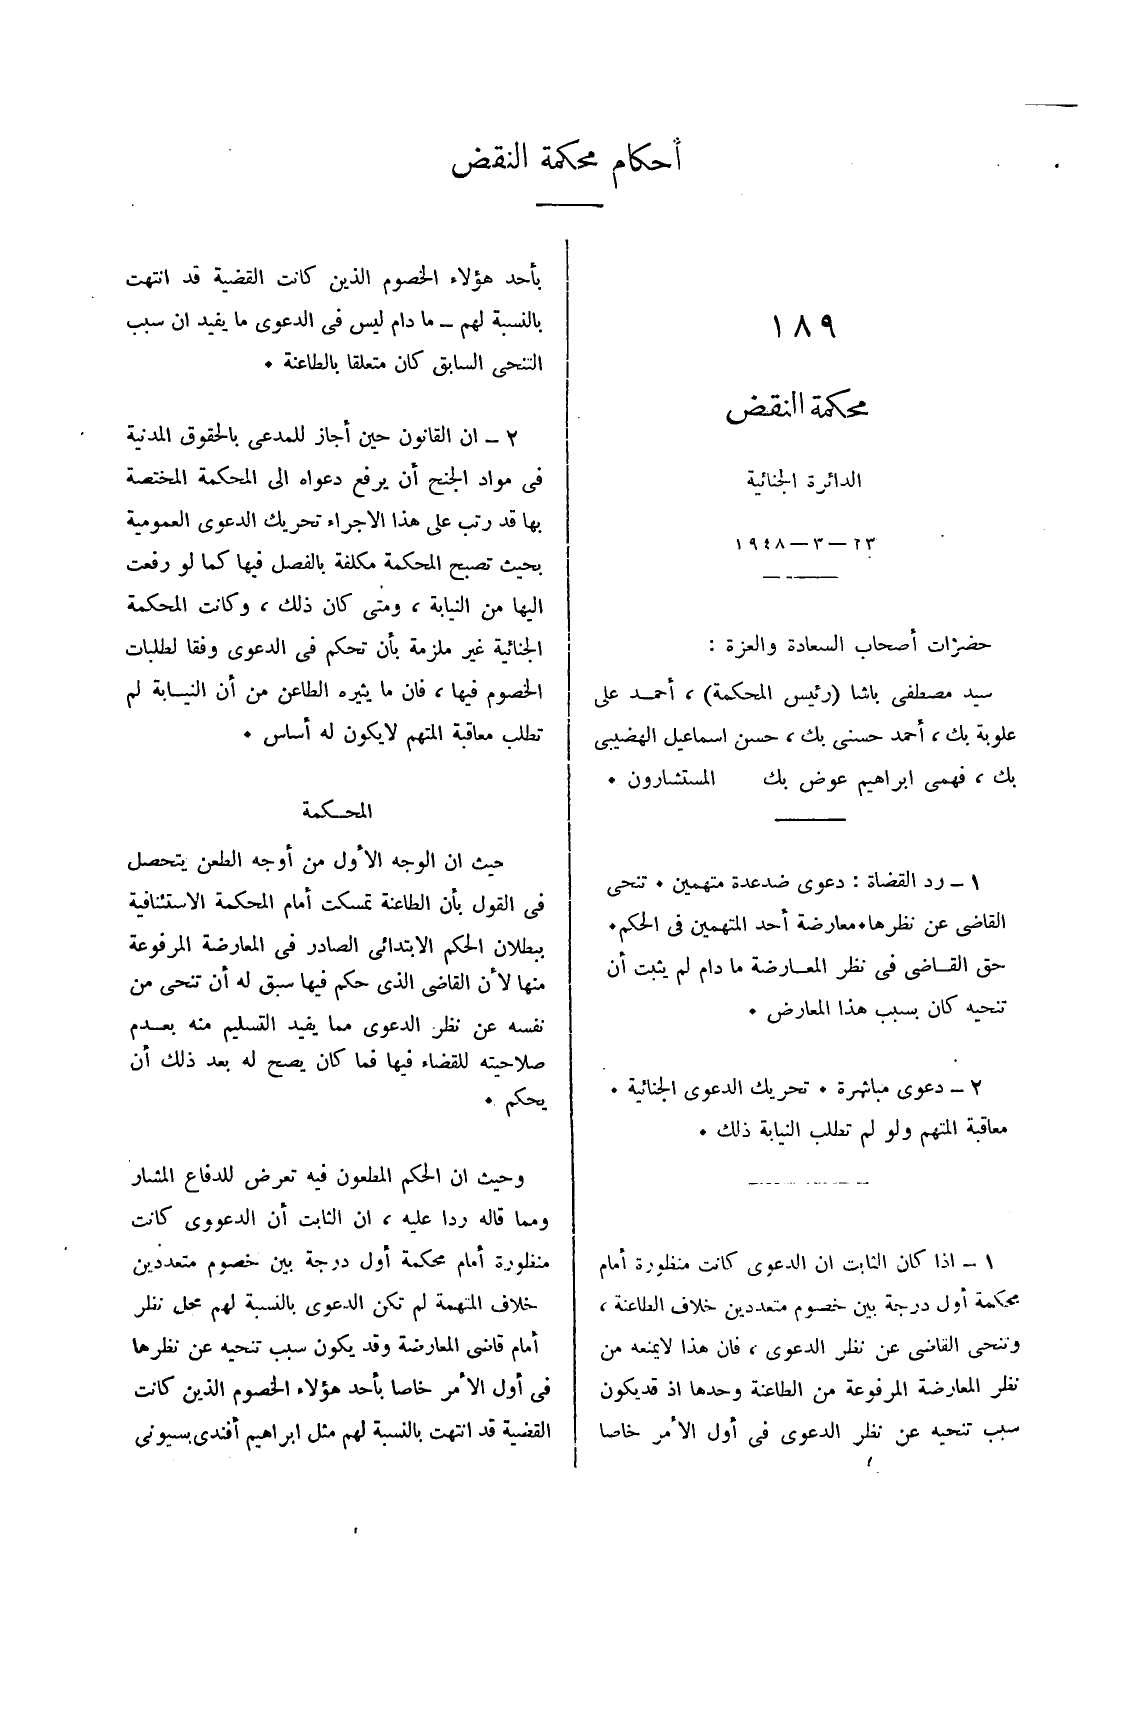 أحكام محكمة النقض
١٨٩
محكمة النقض
الدائرة الجنائية
٢٣ — ٣ — ١٩٤٨
حضرات أصحاب السعادة والعزة :
سيد مصطفى باشا (رئيس المحكمة) ، أحمـد على
علوبة بك ، أحمد حسنى بك ، حسن اسماعيل الهضيبى
بك ، فهمى ابراهيم عوض بك المستشارون .
١ – رد القضاة : دعوى ضدعدة متهمين . تنحى
القاضى عن نظرها . معارضة أحد المتهمين فى الحكم .
حق القـاضى فى نظر المعـارضة ما دام لم يثبت أن
تنحيه كان بسبب هذا المعارض .
٢ – دعوى مباشرة . تحريك الدعوى الجنائية .
معاقبة المتهم ولو لم تطلب النيابة ذلك .
١ – اذا كان الثابت ان الدعوى كانت منظورة أمام
محكمة أول درجة بين خصوم متعددين خلاف الطاعنة ،
وتنحى القاضى عن نظر الدعوى ، فان هذا لايمنعه من
نظر المعارضة المرفوعة من الطاعنة وحدها اذ قديكون
سبب تنحيه عن نظر الدعوى فى أول الأمر خاصا
بأحد هؤلاء الخصوم الذين كانت القضية قد انتهت
بالنسبة لهم – ما دام ليس فى الدعوى ما يفيد ان سبب
التنحى السابق كان متعلقا بالطاعنة .
٢ – ان القانون حين أجاز للمدعى بالحقوق المدنية
فى مواد الجنح أن يرفع دعواه الى المحكمة المختصة
بها قد رتب على هذا الاجراء تحريك الدعوى العمومية
بحيث تصبح المحكمة مكلفة بالفصل فيها كما لو رفعت
اليها من النيابة ، ومتى كان ذلك ، وكانت المحكمة
الجنائية غير ملزمة بأن تحكم فى الدعوى وفقا لطلبات
الخصوم فيها ، فان ما يثيره الطاعن من أن النيـابة لم
تطلب معاقبة المتهم لايكون له أساس .
المحـكمة
حيث ان الوجه الأول من أوجه الطعن يتحصل
فى القول بأن الطاعنة تمسكت أمام المحكمة الاستئنافية
ببطلان الحكم الابتدائى الصادر فى المعارضة المرفوعة
منها لأن القاضى الذى حكم فيها سبق له أن تنحى من
نفسه عن نظر الدعوى مما يفيد التسليم منه بعـدم
صلاحيته للقضاء فيها فما كان يصح له بعد ذلك أن
يحكم .
وحيث ان الحكم المطعون فيه تعرض للدفاع المشار
ومما قاله ردا عليه ، ان الثابت أن الدعووى كانت
منظورة أمام محكمة أول درجة بين خصوم متعددين
خلاف المتهمة لم تكن الدعوى بالنسبة لهم محل نظر
أمام قاضى المعارضة وقد يكون سبب تنحيه عن نظرها
فى أول الأمر خاصا بأحد هؤلاء الخصوم الذين كانت
القضية قد انتهت بالنسبة لهم مثل ابراهيم أفندى بسيونى